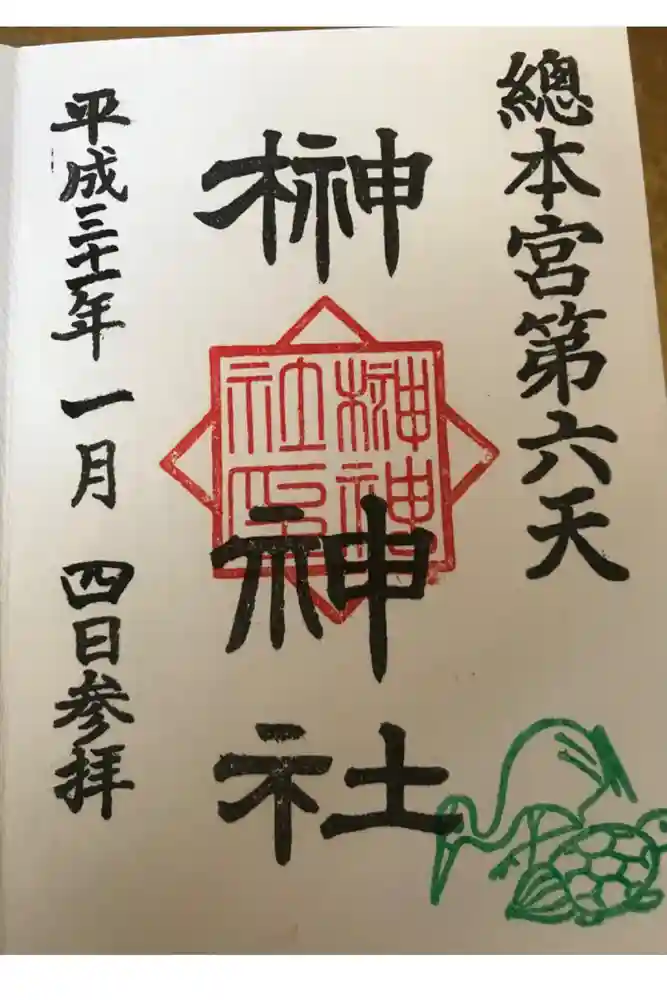 總本宮第六天
榊神社
榊神
社印
平成三十一年一月四日参拝